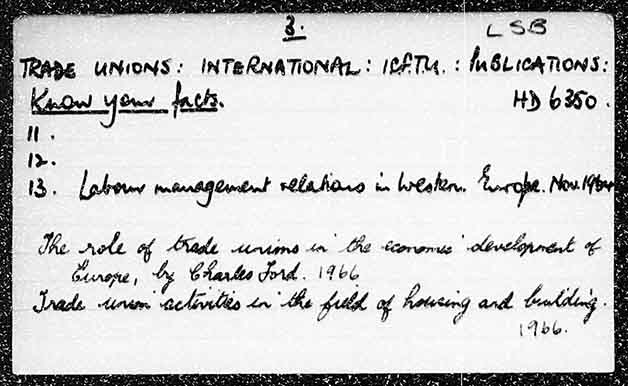 3.
LSB
TRADE UNIONS: INTERNATIONAL: ICFTU. : PUBLICATIONS:
Know your facts.
HD 6350.
11.
12.
13. Labour management relations in Western Europe. Nov.
The role of trade unions in the economic development of
Europe, by Charles Ford. 1966
Trade union activities in the field of housing and building.
1966.